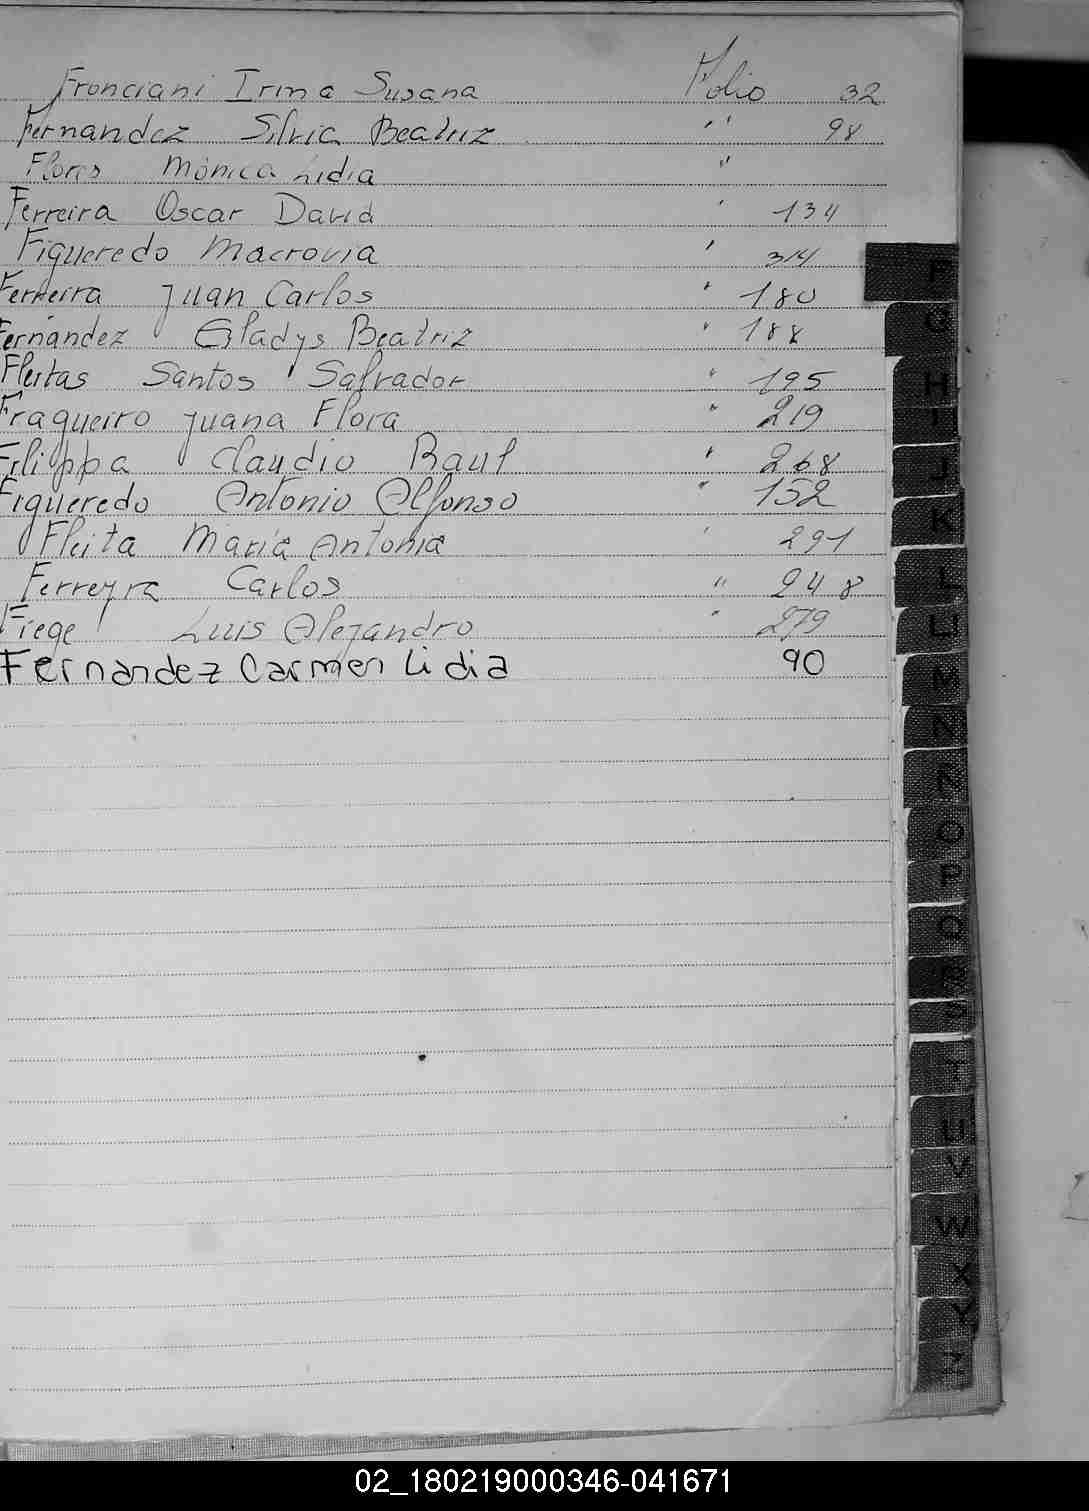 Fronciani Irma Susana Folio 32
Fernandez Silvia Beatriz " 98
Flores Mónica Lidia "
Ferreira Oscar David " 134
Figueredo Macrovia " 314
Ferreira Juan Carlos " 180
Fernández Gladys Beatriz " 188
Fleitas Santos Salvador " 195
Fragueiro Juana Flora " 219
Filippa Claudio Raul " 268
Figueredo Antonio Alfonso " 152
Fleita Maria Antonia " 291
Ferreyra Carlos " 248
Fiege Luis Alejandro " 279
Fernandez Carmen Lidia 90
F
G
H
I
J
K
L
LL
M
N
Ñ
O
P
Q
R
S
T
U
V
W
X
Y
Z
02_180219000346-041671